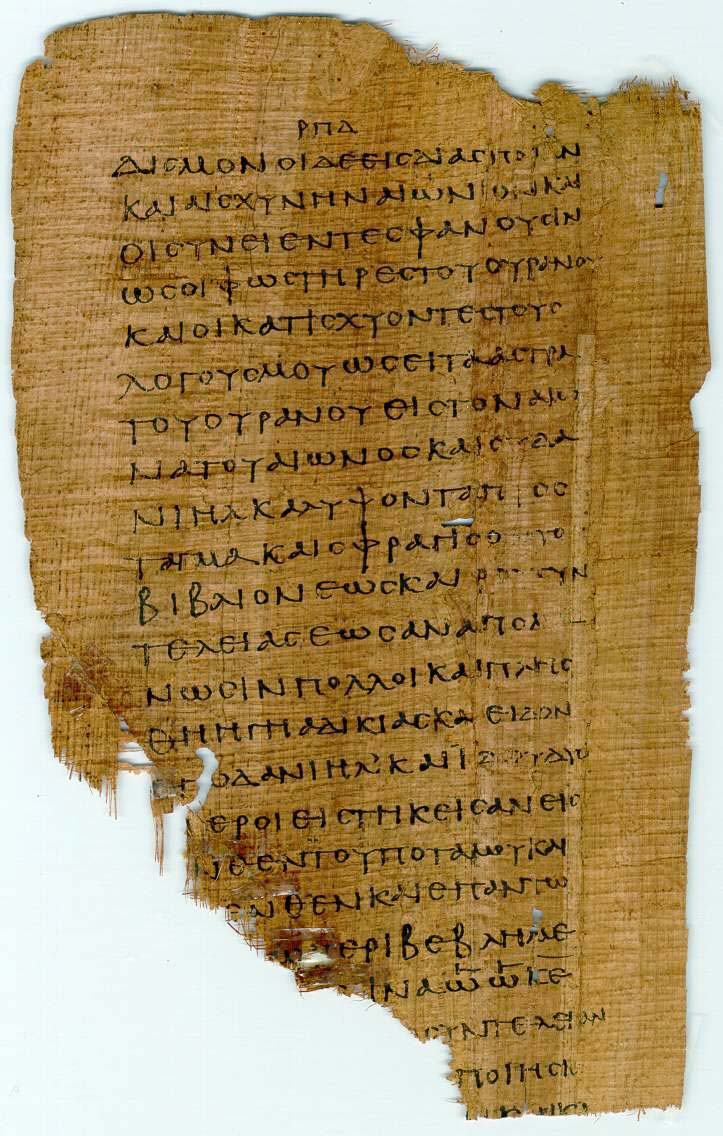 ΡΠΔ
ΔΙCΜΟΝΟΙΔΕΕΙCΔΙΑCΠΟΡΑΝ
ΚΑΙΑΙCΧΥΝΗΝΑΙΩΝΙΟΝΚΑΙ
ΟΙCΥΝΕΙΕΝΤΕCΦΑΝΟΥCΙΝ
ΩCΟΙΦΩCΤΗΡΕCΤΟΥΟΥΡΑΝΟΥ
ΚΑΙΟΙΚΑΤΙCΧΥΟΝΤΕCΤΟΥC
ΛΟΓΟΥCΜΟΥΩCΕΙΤΑΑCΤΡΑ
ΤΟΥΟΥΡΑΝΟΥΘΙCΤΟΝΑΙΩ
ΝΑΤΟΥΑΙΩΝΟCΚΑΙCΥΔΑ
ΝΙΗΛΚΑΛΥΨΟΝΤΑΠΡΟC
ΤΑΓΜΑΚΑΙCΦΡΑΓΙCΟΝΤΟ
ΒΙΒΛΙΟΝΕΩCΚΑΙΡΟΥCΥΝ
ΤΕΛΕΙΑCΕΩCΑΝΑΠΟ
ΝΩCΙΝΠΟΛΛΟΙΚΑΙΠΛΗC
ΘΗΗΓΗΑΔΙΚΙΑCΚΑΙΕΙΔΟΝ
ΓΩΔΑΝΙΗΛΚΑΙΪΔΟΥΔΥΟ
ΤΕΡΟΙΕΙCΤΗΚΕΙCΑΝΕΙC
ΝΘΕΝΤΟΥΠΟΤΑΜΟΥΚΑΙ
ΕΝΘΕΝΚΑΙΕΙΠΑΝΤΩ
ΠΕΡΙΒΕΒΛΗΜΕ
CΥΝΤΕΛΕΙΑΝ
ΠΟΙΗCΙ